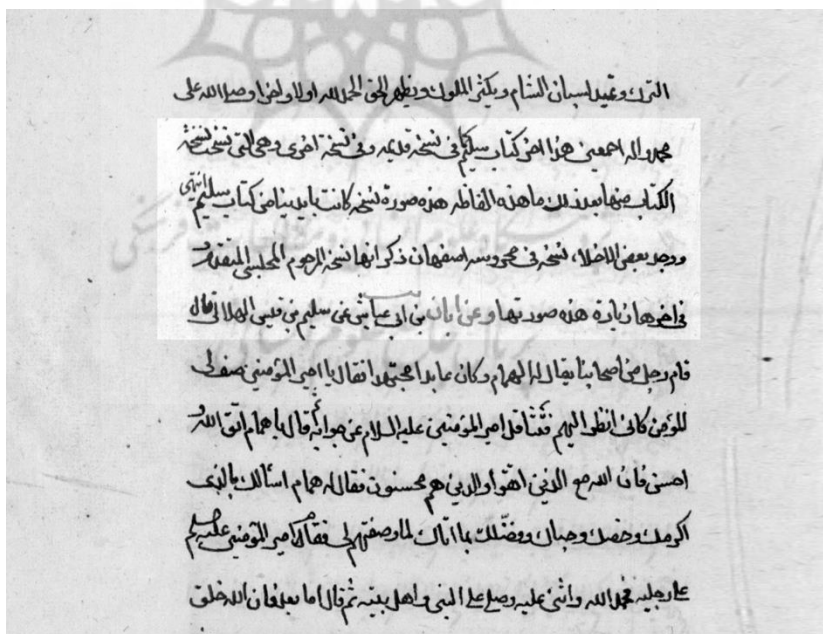 الترك وعبيد اسبان الشام ويكثر الملوك ويظهر الحق الحمد لله اولا واخرا وصلى الله على
محمد واله اجمعين هذا اخر كتاب سليم كما فى نسخة قديمه وفى نسخة اخرى وهى التى نسخت نسخة
الكتاب منها بعد ذلك ما هذه الفاظه هذه صورة نسخه كانت بايدينا من كتاب سليم انتهى
ووجد بعض الاخلاء نسخه فى محروسه اصفهان ذكر انها نسخه المرحوم المجلسى
فى اخرها زيادة هذه صورتها وعن ابان بن ابى عياش عن سليم بن قيس الهلالى قال
قام رجل من اصحابنا يقال له الهمام وكان عابدا مجتهدا فقال يا امير المؤمنين صف لى
المؤمن كانى انظر اليهم فتثاقل امير المؤمنين عليه السلام عن جوابه ثم قال يا همام اتق الله و
احسن فان الله مع الذين اتقوا والذين هم محسنون فقال له همام اسألك بالذى
اكرمك وخصك وحباك وفضلك بما اتاك لما وصفتهم لى فقام امير المؤمنين عليه
على رجليه فحمد الله واثنى عليه وصلى على النبى واهل بيته ثم قال اما بعد فان الله خلق